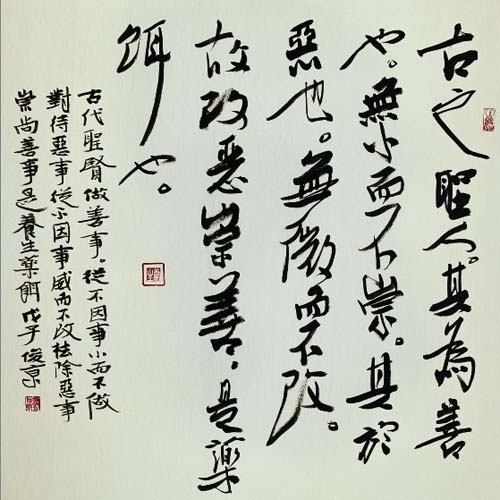 古之聖人。其為善
也。無小而不崇。其於
惡也。無微而不改。
故改惡崇善，是藥
餌也。
古代聖賢做善事。從不因事小而不做
對待惡事從不因事微而不改祛除惡事
崇尚善事是養生藥餌戊子俊京